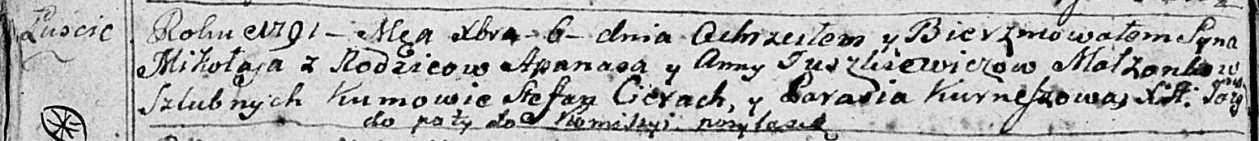 Łuście
Roku 1791 – Mca Xbra – 6 – dnia Ochrzciłem y Bierzmowałem Syna
Mikołaja z Rodzicow Apanasa y Anny Juszkiewiczow Małzonkow
Szlubnych Kumowie Stefan Cierach, y Parasia Kurneszowa, X.
do do Komissyi